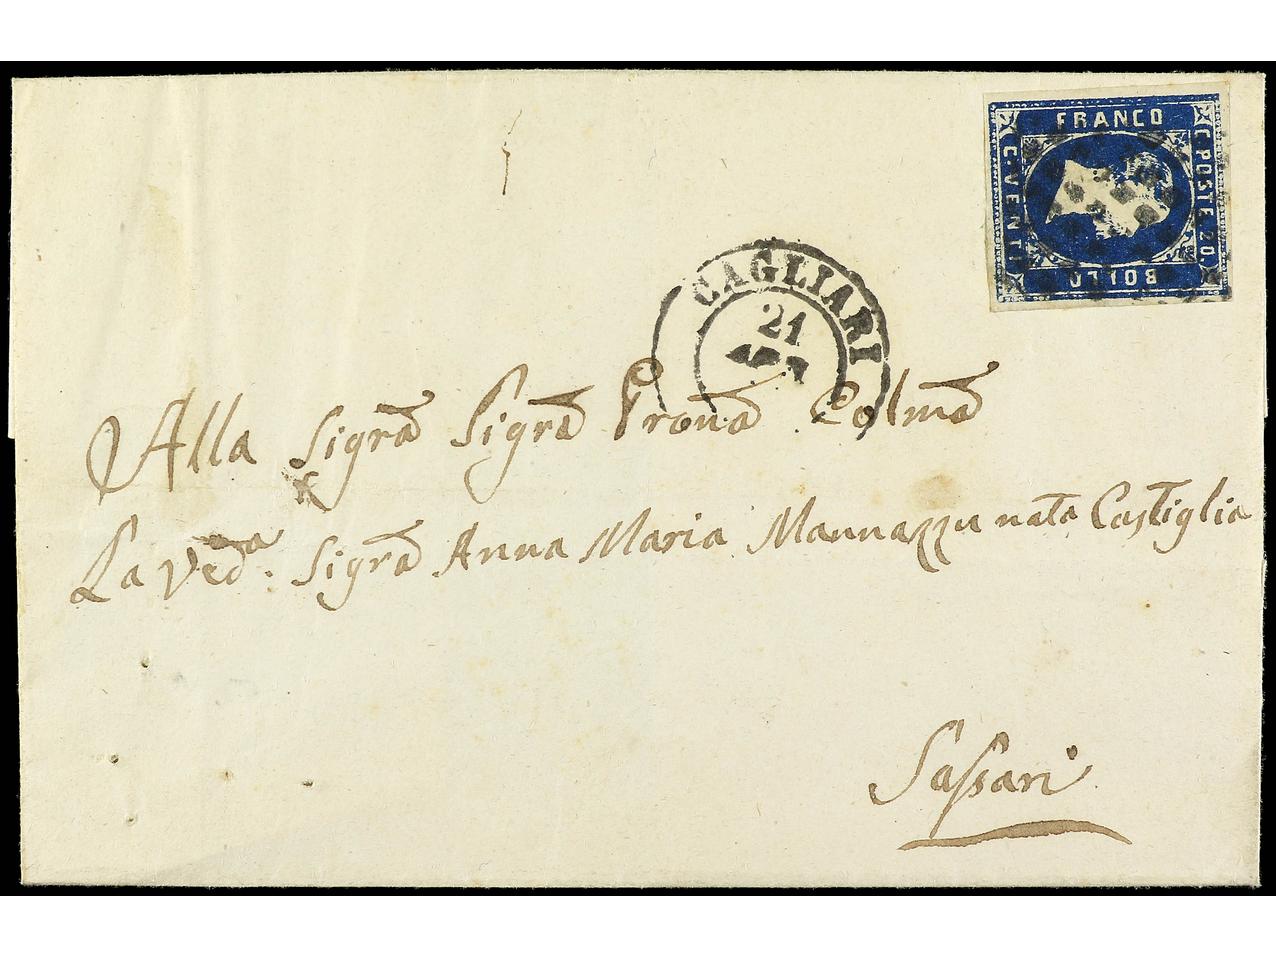 FRANCO
C. VENTI
C. POSTE 20.
BOLLO
CAGLIARI
21
APR
Alla Sigra Sigra Prona Colma
La Veda. Sigra Anna Maria Mannazzu nata Castiglia
Sassari